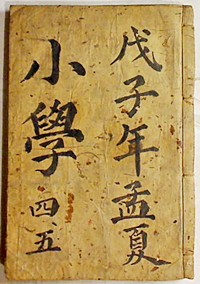 戊子年孟夏
小學 四五